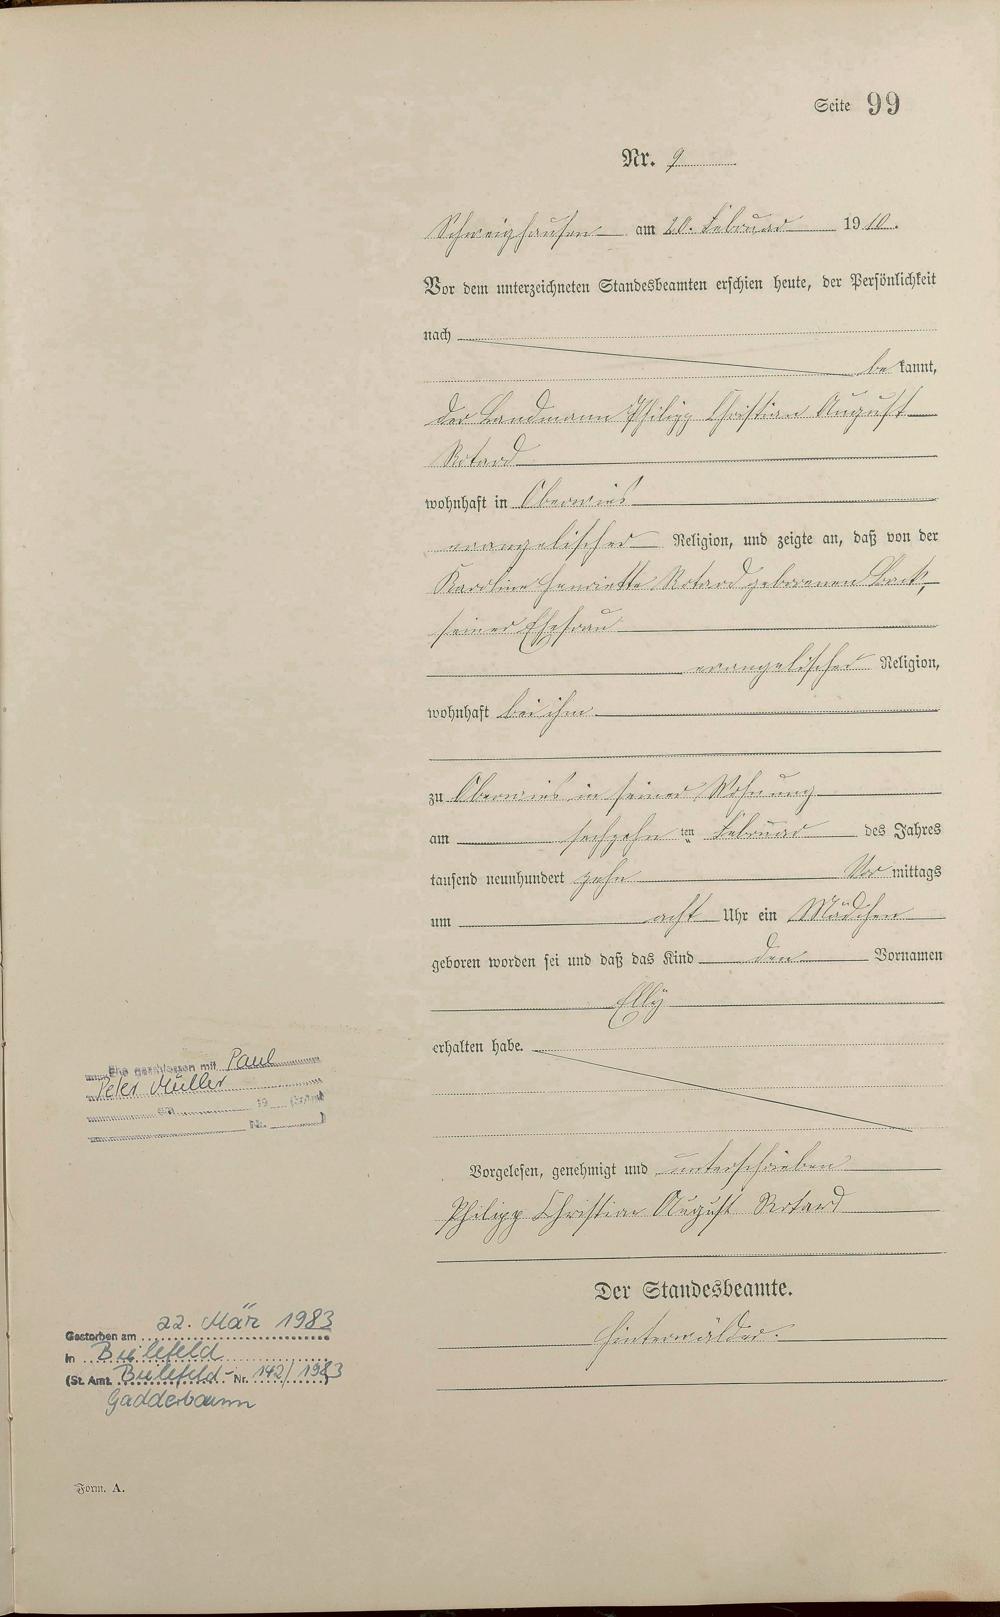 Seite 99
Nr. 9
Schweighausen am 20. Februar 1910.
Vor dem unterzeichneten Standesbeamten erschien heute, der Persönlichkeit
nach
be kannt,
der Landmann Philipp Christian August
Rotard
wohnhaft in Oberwies
evangelischer Religion, und zeigte an, daß von der
Karoline Henriette Rotard geborenen
seiner Ehefrau
evangelischer Religion,
wohnhaft bei ihm
zu Oberwies in seiner Wohnung
am sechzehn ten Februar des Jahres
tausend neunhundert zehn Vor mittags
um acht Uhr ein Mädchen
geboren worden sei und daß das Kind den Vornamen
Elly
erhalten habe.
Vorgelesen, genehmigt und unterschrieben
Philipp Christian August Rotard
Der Standesbeamte.
Hinterwälder.
Ehe geschlossen mit Paul
Peter Müller
am 19
Nr.
Gestorben am 22. Mär 1983
in Bielefeld
(St. Amt. Bielefeld- Nr. 142/1983
Gadderbaum
Form. A.